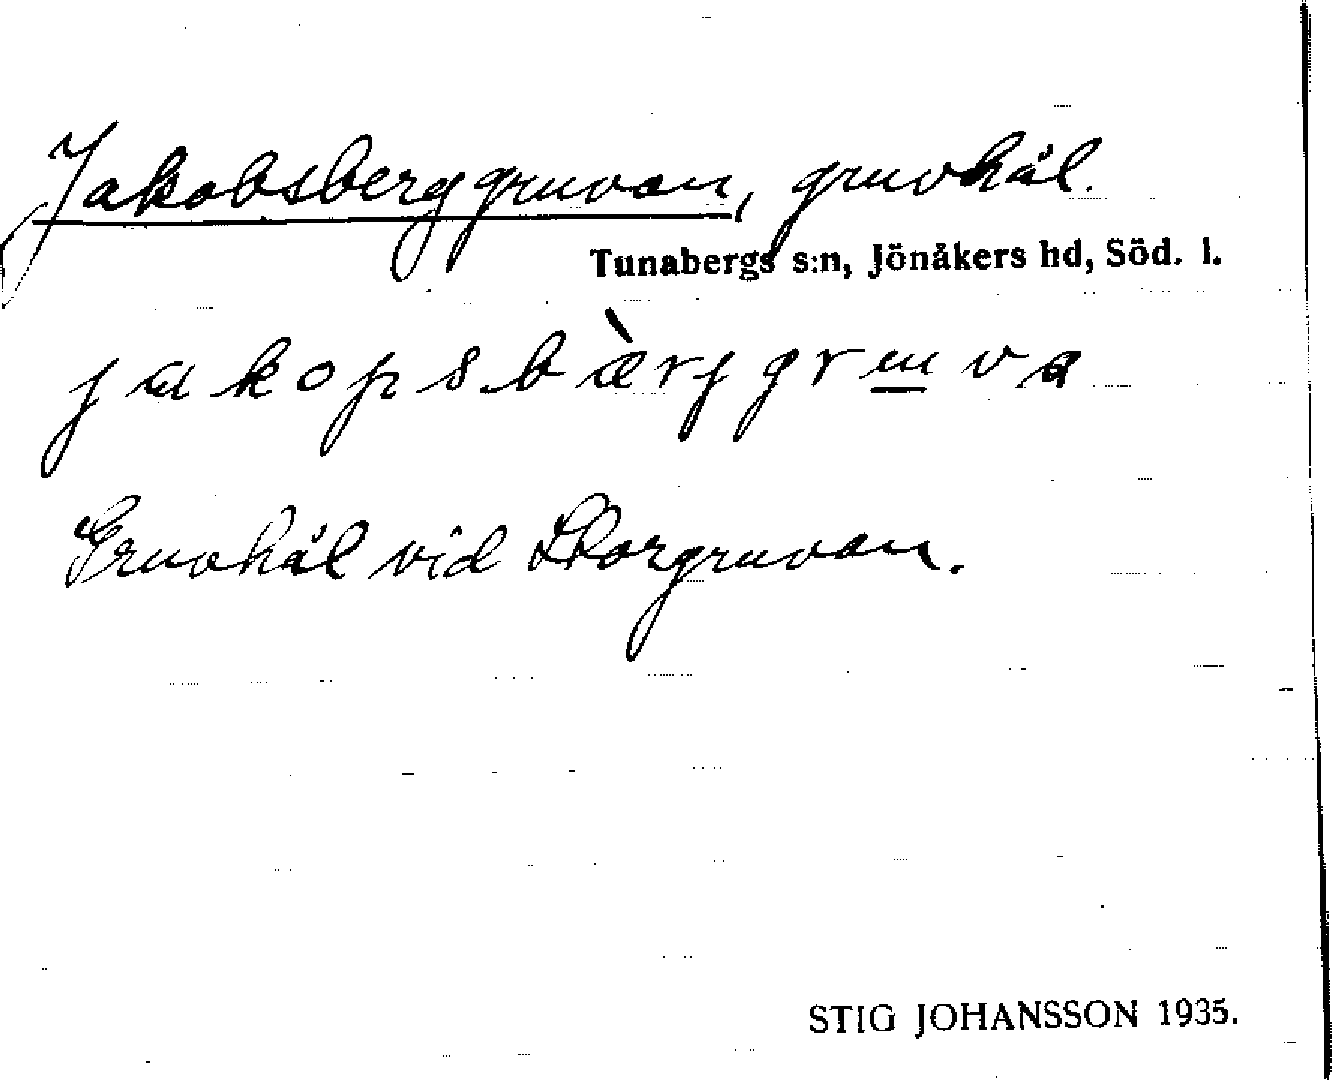 Jakobsberggruvan, gruvhål.
Tunabergs s:n, Jönåkers hd, Söd. l.
jakopsbæ̀rjgru̲va
Gruvhål vid Storgruvan.
STIG JOHANSSON 1935.